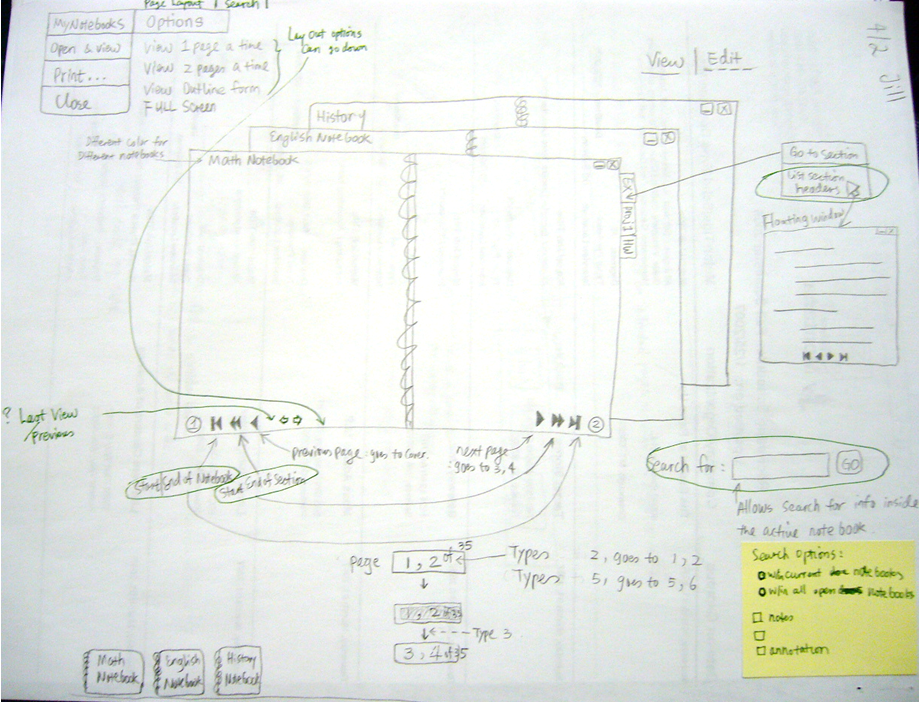 Page Layout | Search |
MyNotebooks
Options
Open & view
Print...
Close
View 1 page a time
View 2 pages a time
View Outline form
FULL Screen
Lay out options
can go down
View | Edit
4/2 Jill
History
English Notebook
Math Notebook
Different color for
Different notebooks
Go to section
List section
headers
Floating window
EX
Proj
HW
? Last View
Previous
1
2
previous page : goes to cover.
next page
: goes to 3, 4
Start/End of Notebook
Start/End of Section
Search for :
GO
Allows search for info inside
the active notebook.
page
1, 2 of 35
Types 2, goes to 1, 2
Types 5, goes to 5, 6
1, 2 of 35
Type 3
3, 4 of 35
Search Options:
w/in current notebooks
w/in all open notebooks
notes
annotation
Math
Notebook
English
Notebook
History
Notebook